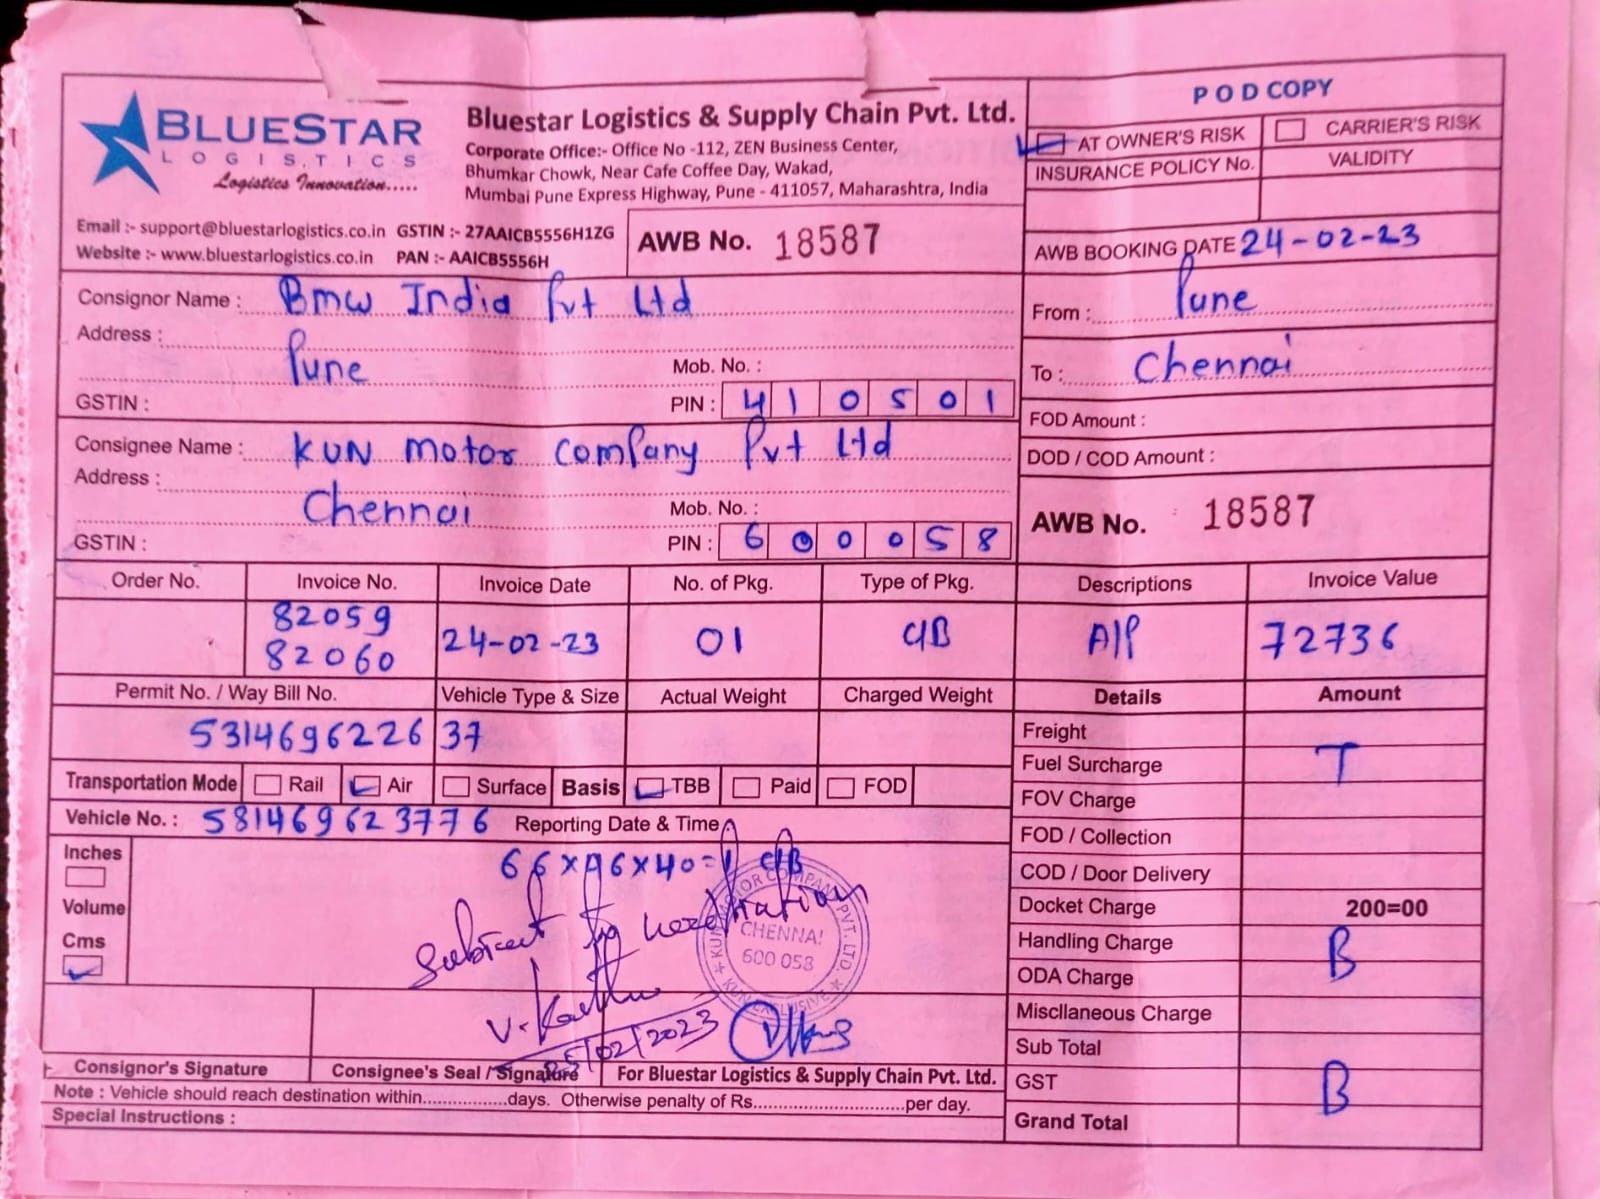 BLUESTAR
LOGISTICS
Logistics Innovation.....
Bluestar Logistics & Supply Chain Pvt. Ltd.
Corporate Office:- Office No -112, ZEN Business Center,
Bhumkar Chowk, Near Cafe Coffee Day, Wakad,
Mumbai Pune Express Highway, Pune - 411057, Maharashtra, India
Email :- support@bluestarlogistics.co.in GSTIN :- 27AAICB5556H1ZG
Website :- www.bluestarlogistics.co.in PAN :- AAICB5556H
AWB No. 18587
POD COPY
AT OWNER'S RISK CARRIER'S RISK
INSURANCE POLICY No. VALIDITY
AWB BOOKING DATE 24-02-23
From : Pune
To : Chennai
FOD Amount :
DOD / COD Amount :
AWB No. 18587
Consignor Name : Bmw India Pvt Ltd
Address :
Pune Mob. No. :
GSTIN : PIN : 410501
Consignee Name : KUN Motor Company Pvt Ltd
Address :
Chennai Mob. No. :
GSTIN : PIN : 600058
Order No. Invoice No. Invoice Date No. of Pkg. Type of Pkg. Descriptions Invoice Value
82059
82060 24-02-23 01 C/B A/P 72736
Permit No. / Way Bill No. Vehicle Type & Size Actual Weight Charged Weight Details Amount
531469622637
Freight
Fuel Surcharge T
FOV Charge
FOD / Collection
COD / Door Delivery
Docket Charge 200=00
Handling Charge B
ODA Charge
Miscllaneous Charge
Sub Total
GST B
Grand Total
Transportation Mode Rail Air Surface Basis TBB Paid FOD
Vehicle No. : 581469623776 Reporting Date & Time
Inches
Volume
Cms
66x46x40=1 C/B
KUN MOTOR COMPANY PVT. LTD.
CHENNAI
600 058
KUN EXCLUSIVE
25/02/2023
Consignor's Signature Consignee's Seal / Signature For Bluestar Logistics & Supply Chain Pvt. Ltd.
Note : Vehicle should reach destination within.................days. Otherwise penalty of Rs...............................per day.
Special Instructions :